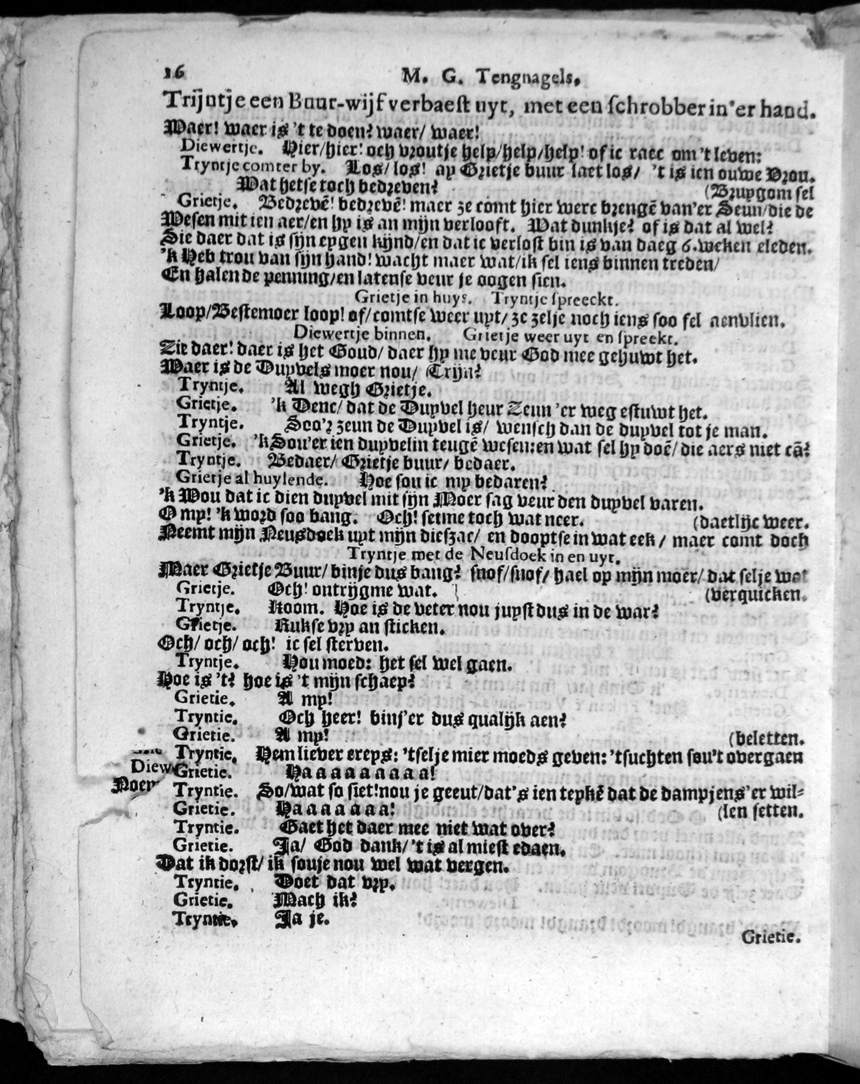 16 M. G. Tengnagels,
Trijntje een Buur-wijf verbaest uyt, met een schrobber in'er hand.
Waer! waer is 't te doen? waer/ waer!
Diewertje. Hier/hier! och vroutje help/help/help! of ic raec om 't leven:
Tryntje comter by. Los/ los! ay Grietje buur laet los/ 't is ien ouwe Vrou.
Wat hetse toch bedreven? (Bruygom sel
Grietje. Bedrevē! bedrevē! maer ze comt hier werc brengē van'er Seun/die de
Wesen mit ien aer/en hy is an mijn verlooft. Wat dunkje? of is dat al wel?
Sie daer dat is sijn eygen kijnd/en dat ic verlost bin is van daeg 6. weken eleden.
'k Heb trou van sijn hand! wacht maer wat/ik sel iens binnen treden/
En halen de penning/en latense veur je oogen sien.
Grietje in huys. Tryntje spreeckt.
Loop/Bestemoer loop! of/comtse weer uyt/ ze zelje noch iens soo fel aenvlien.
Diewertje binnen. Grietje weer uyt en spreekt.
Zie daer! daer is het Goud/ daer hy me veur God mee gehuwt het.
Waer is de Duyvels moer nou/ Trijn?
Tryntje. Al wegh Grietje.
Grietje. 'k Denc/ dat de Duyvel heur Zeun 'er weg estuwt het.
Tryntje. Soo'r zeun de Duyvel is/ wensch dan de duyvel tot je man.
Grietje. 'k Sou'er ien duyvelin teugē wesen: en wat sel hy doē/ die aers niet cā?
Tryntje. Bedaer/ Grietje buur/ bedaer.
Grietje al huylende. Hoe sou ic my bedaren?
'k Wou dat ic dien duyvel mit sijn Moer sag veur den duyvel varen.
O my! 'k word soo bang. Och! setme toch wat neer. (daetlijc weer.
Neemt mijn Neusdoek uyt mijn diefzac/ en dooptse in wat eek/ maer comt doch
Tryntje met de Neusdoek in en uyt.
Maer Grietje Buur/ binje dus bang? snof/snof/ hael op mijn moer/ dat selje wat
Grietje. Och! ontrijgme wat. (verquicken.
Tryntje. Koom. Hoe is de veter nou juyst dus in de war?
Grietje. Rukse vry an sticken.
Och/ och/ och! ic sel sterven.
Tryntje. Hou moed: het sel wel gaen.
Hoe is 't? hoe is 't mijn schaep?
Grietie. A my!
Tryntie. Och heer! bins'er dus qualijk aen?
Grietie. A my! (beletten.
Tryntie. Hem liever ereys: 'tselje mier moeds geven: 'tsuchten sou't overgaen
Diew Grietie. Haaaaaaaaa!
Noem Tryntie. So/wat so siet! nou je geeut/dat's ien teykē dat de dampjens'er wil-
Grietie. Haaaaaaa! (len setten.
Tryntie. Gaet het daer mee niet wat over?
Grietie. Ja/ God dank/ 't is al miest edaen.
Dat ik dorst/ ik souje nou wel wat vergen.
Tryntie. Doet dat vry.
Grietie. Mach ik?
Tryntie. Ja je.
Grietie.